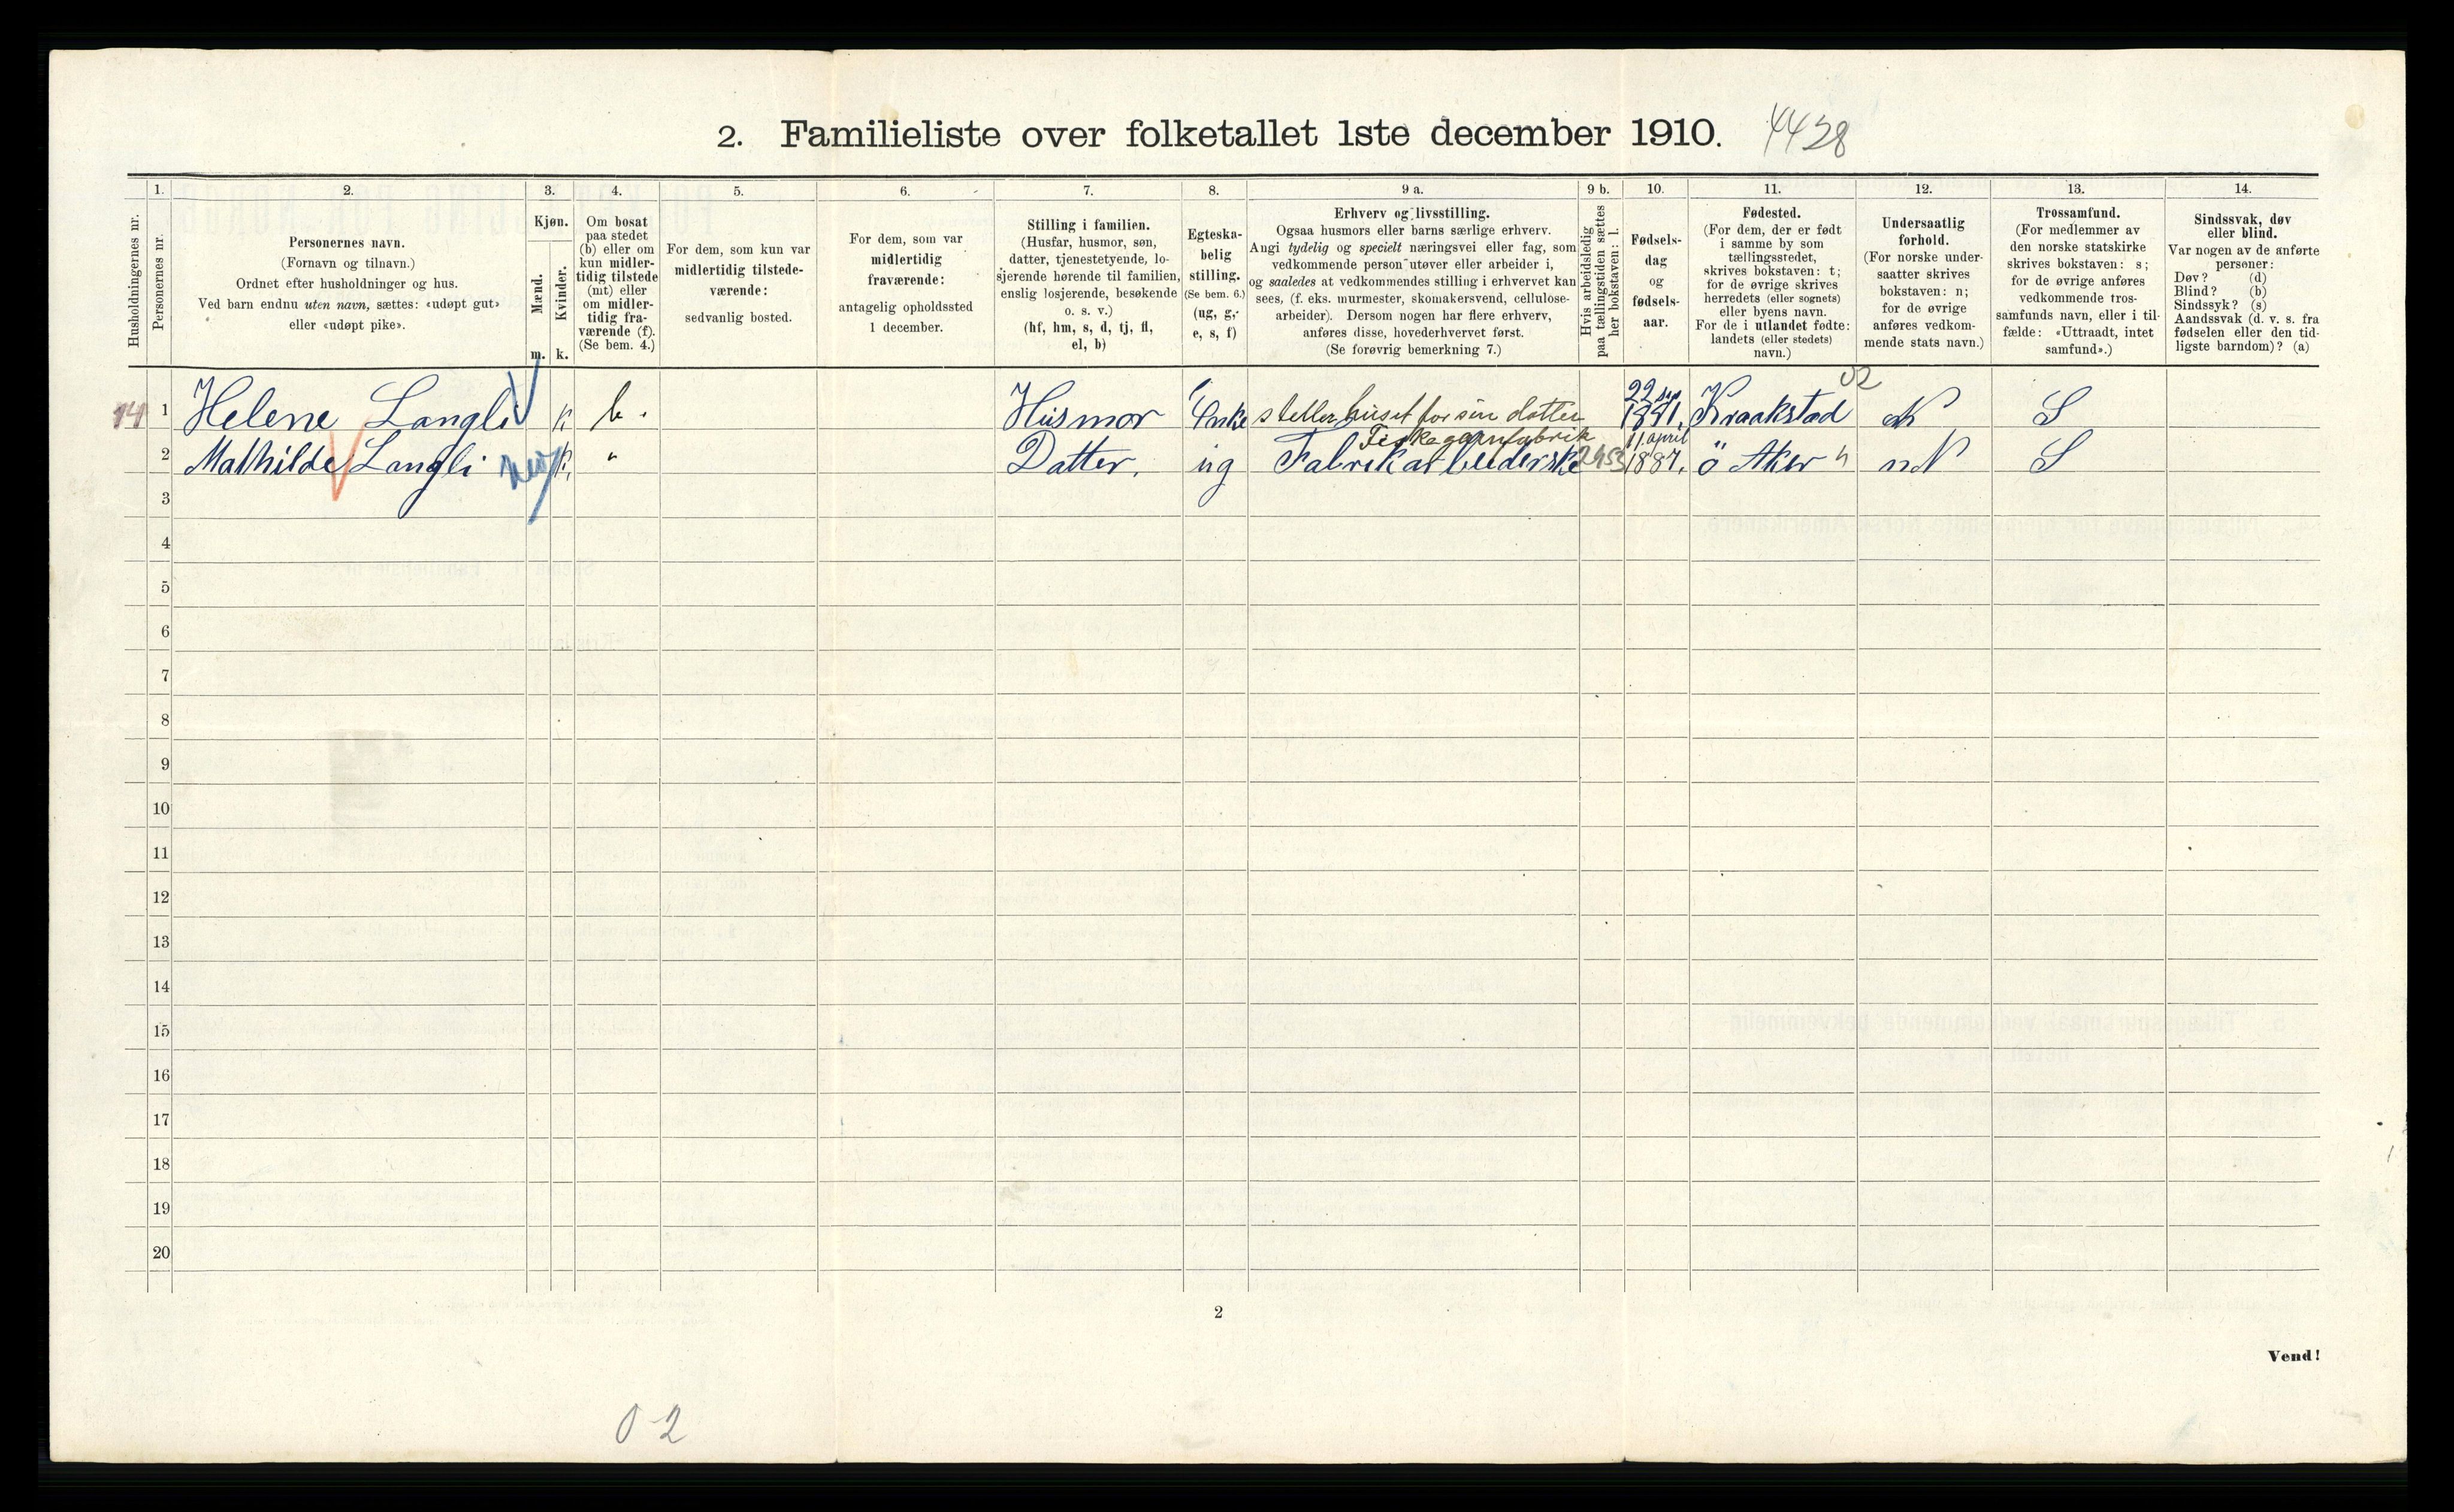 2. Familieliste over folketallet 1ste december 1910. 4428
Husholdningernes nr.
1.
Personernes nr.
2.
Personernes navn.
(Fornavn og tilnavn.)
Ordnet efter husholdninger og hus.
Ved barn endnu uten navn, sættes: «udøpt gut»
eller «udøpt pike».
3.
Kjøn.
Mænd.
m.
Kvinder.
k.
4.
Om bosat
paa stedet
(b) eller om
kun midler-
tidig tilstede
(mt) eller
om midler-
tidig fra-
værende (f).
(Se bem. 4.)
5.
For dem, som kun var
midlertidig tilstede-
værende:
sedvanlig bosted.
6.
For dem, som var
midlertidig
fraværende:
antagelig opholdssted
1 december.
7.
Stilling i familien.
(Husfar, husmor, søn,
datter, tjenestetyende, lo-
sjerende hørende til familien,
enslig losjerende, besøkende
o. s. v.)
(hf, hm, s, d, tj, fl,
el, b)
8.
Egteska-
belig
stilling.
(Se bem. 6.)
(ug, g,
e, s, f)
9 a.
Erhverv og livsstilling.
Ogsaa husmors eller barns særlige erhverv.
Angi tydelig og specielt næringsvei eller fag, som
vedkommende person utøver eller arbeider i,
og saaledes at vedkommendes stilling i erhvervet kan
sees, (f. eks. murmester, skomakersvend, cellulose-
arbeider). Dersom nogen har flere erhverv,
anføres disse, hovederhvervet først.
(Se forøvrig bemerkning 7.)
9 b.
Hvis arbeidsledig
paa tællingstiden sættes
her bokstaven: l.
10.
Fødsels-
dag
og
fødsels-
aar.
11.
Fødested.
(For dem, der er født
i samme by som
tællingsstedet,
skrives bokstaven: t;
for de øvrige skrives
herredets (eller sognets)
eller byens navn.
For de i utlandet fødte:
landets (eller stedets)
navn.)
12.
Undersaatlig
forhold.
(For norske under-
saatter skrives
bokstaven: n;
for de øvrige
anføres vedkom-
mende stats navn.)
13.
Trossamfund.
(For medlemmer av
den norske statskirke
skrives bokstaven: s;
for de øvrige anføres
vedkommende tros-
samfunds navn, eller i til-
fælde: «Uttraadt, intet
samfund».)
14.
Sindssvak, døv
eller blind.
Var nogen av de anførte
personer:
Døv? (d)
Blind? (b)
Sindssyk? (s)
Aandssvak (d. v. s. fra
fødselen eller den tid-
ligste barndom)? (a)
02
22 sep
14 1 Helene Langli k b. Husmor Enke steller huset for sin datter Kraakstad N S
Fiskegarnfabrik 11. april
2 Mathilde Langli k. " Datter. ug Fabrikarbeiderske 1887. ö Aker n N S
3
4
5
6
7
8
9
10
11
12
13
14
15
16
17
18
19
20
2
Vend!
02